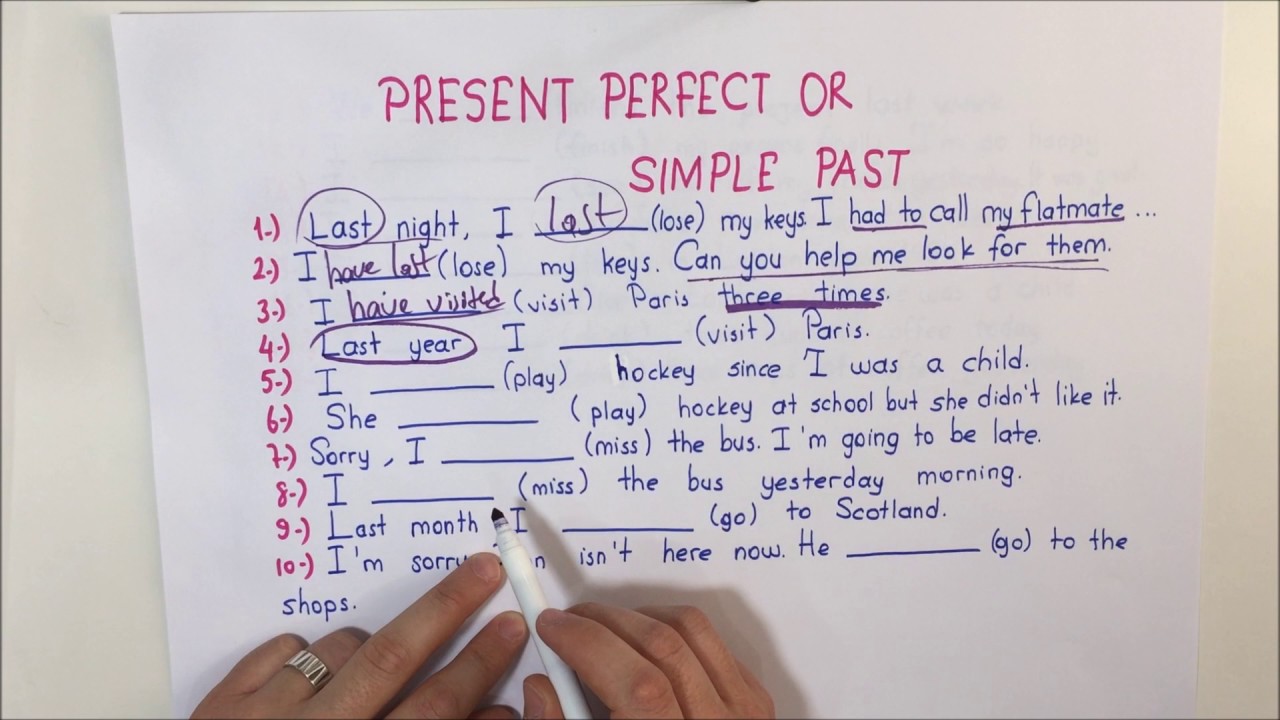 PRESENT PERFECT OR
SIMPLE PAST
1-) Last night, I lost (lose) my keys. I had to call my flatmate ...
2-) I have lost (lose) my keys. Can you help me look for them.
3-) I have visited (visit) Paris three times.
4-) Last year I ________ (visit) Paris.
5-) I ________ (play) hockey since I was a child.
6-) She ________ (play) hockey at school but she didn't like it.
7-) Sorry, I ________ (miss) the bus. I'm going to be late.
8-) I ________ (miss) the bus yesterday morning.
9-) Last month I ________ (go) to Scotland.
10-) I'm sorry isn't here now. He ________ (go) to the
shops.